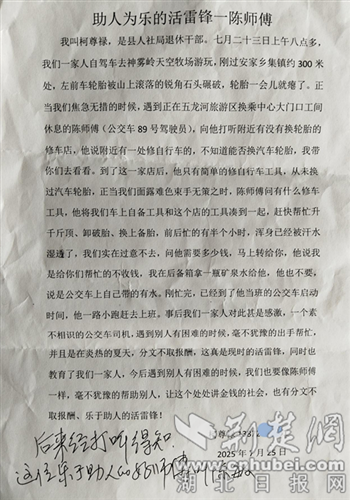 助人为乐的活雷锋—陈师傅
我叫柯尊禄，是县人社局退休干部。七月二十三日上午八点多，
我们一家人自驾车去神雾岭天空牧场游玩，刚过安家乡集镇约 300 米
处，左前车轮胎被山上滚落的锐角石头碾破，轮胎一会儿就瘪了。正
当我们焦急无措的时候，遇到正在五龙河旅游区换乘中心大门口工间
休息的陈师傅（公交车 89 号驾驶员），向他打听附近有没有换轮胎的
修车店，他说附近有一处修自行车的，不知道能否换汽车轮胎，我带
你们去看看。到了这一家店后，他只有简单的修自行车工具，从未换
过汽车轮胎，正当我们面露难色束手无策之时，陈师傅问有什么修车
工具，他将我们车上自备工具和这个店的工具凑到一起，赶快帮忙升
千斤顶、卸破胎、换上备胎，前后忙的有半个小时，浑身已经被汗水
湿透了，我们实在过意不去，问他需要多少钱，马上转给你，他说我
是给你们帮忙的不收钱，我在后备箱拿一瓶矿泉水给他，他也不要，
说是公交车上自己带的有水。刚忙完，已经到了他当班的公交车启动
时间，他一路小跑赶去上班。事后我们一家人对此甚是感激，一个素
不相识的公交车司机，遇到别人有困难的时候，毫不犹豫的出手帮忙，
并且是在炎热的夏天，分文不取报酬，这真是现时的活雷锋！同时也
教育了我们一家人，今后遇到别人有困难的时候，我们也要像陈师傅
一样，毫不犹豫的帮助别人，让这个处处讲金钱的社会，也有分文不
取报酬、乐于助人的活雷锋！
2025 年 7 月 25 日
后来经打听得知
这位乐于助人的好师傅
荆楚网
www.cnhubei.com
湖北日报网